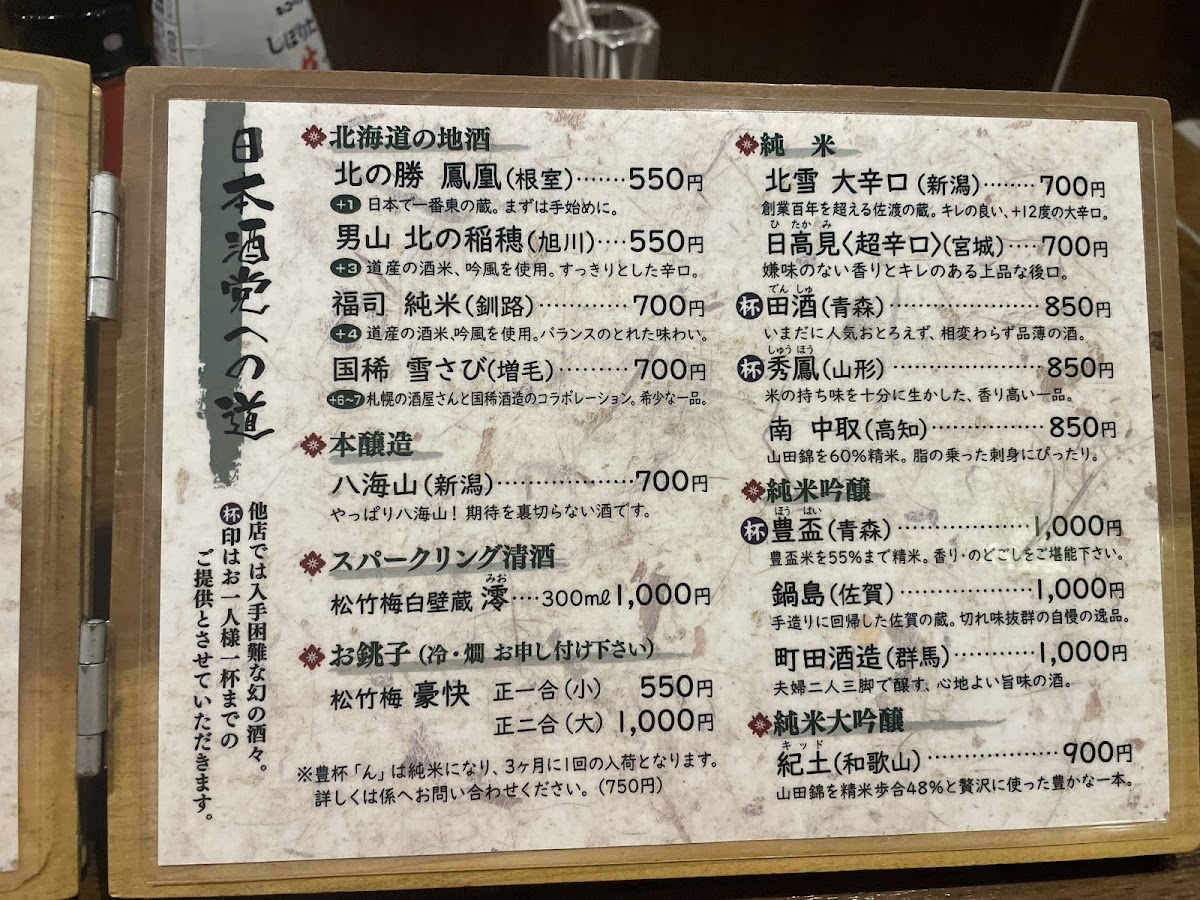 しぼりた
日本酒党への道
他店では入手困難な幻の酒々。
杯印はお一人様一杯までの
ご提供とさせていただきます。
北海道の地酒
北の勝 鳳凰(根室)·······550円
+1 日本で一番東の蔵。まずは手始めに。
男山 北の稲穂(旭川)····550円
+3 道産の酒米、吟風を使用。すっきりとした辛口。
福司 純米(釧路)············700円
+4 道産の酒米、吟風を使用。バランスのとれた味わい。
国稀 雪さび(増毛)·········700円
+6~7 札幌の酒屋さんと国稀酒造のコラボレーション。希少な一品。
本醸造
八海山(新潟)··················700円
やっぱり八海山！期待を裏切らない酒です。
スパークリング清酒
みお
松竹梅白壁蔵 澪····300ml 1,000円
お銚子(冷・燗 お申し付け下さい)
松竹梅 豪快 正一合(小) 550円
正二合(大) 1,000円
※豊杯「ん」は純米になり、3ヶ月に1回の入荷となります。
詳しくは係へお問い合わせください。(750円)
純 米
北雪 大辛口(新潟)········700円
創業百年を超える佐渡の蔵。キレの良い、+12度の大辛口。
ひたかみ
日高見〈超辛口〉(宮城)····700円
嫌味のない香りとキレのある上品な後口。
でんしゅ
杯 田酒(青森)·····················850円
いまだに人気おとろえず、相変わらず品薄の酒。
しゅうほう
杯 秀鳳(山形)····················850円
米の持ち味を十分に生かした、香り高い一品。
南 中取(高知)···············850円
山田錦を60%精米。脂の乗った刺身にぴったり。
純米吟醸
ほうはい
杯 豊盃(青森)··················1,000円
豊盃米を55%まで精米。香り・のどごしをご堪能下さい。
鍋島(佐賀)··················1,000円
手造りに回帰した佐賀の蔵。切れ味抜群の自慢の逸品。
町田酒造(群馬)···········1,000円
夫婦二人三脚で醸す、心地よい旨味の酒。
純米大吟醸
キッド
紀土(和歌山)·················900円
山田錦を精米歩合48%と贅沢に使った豊かな一本。